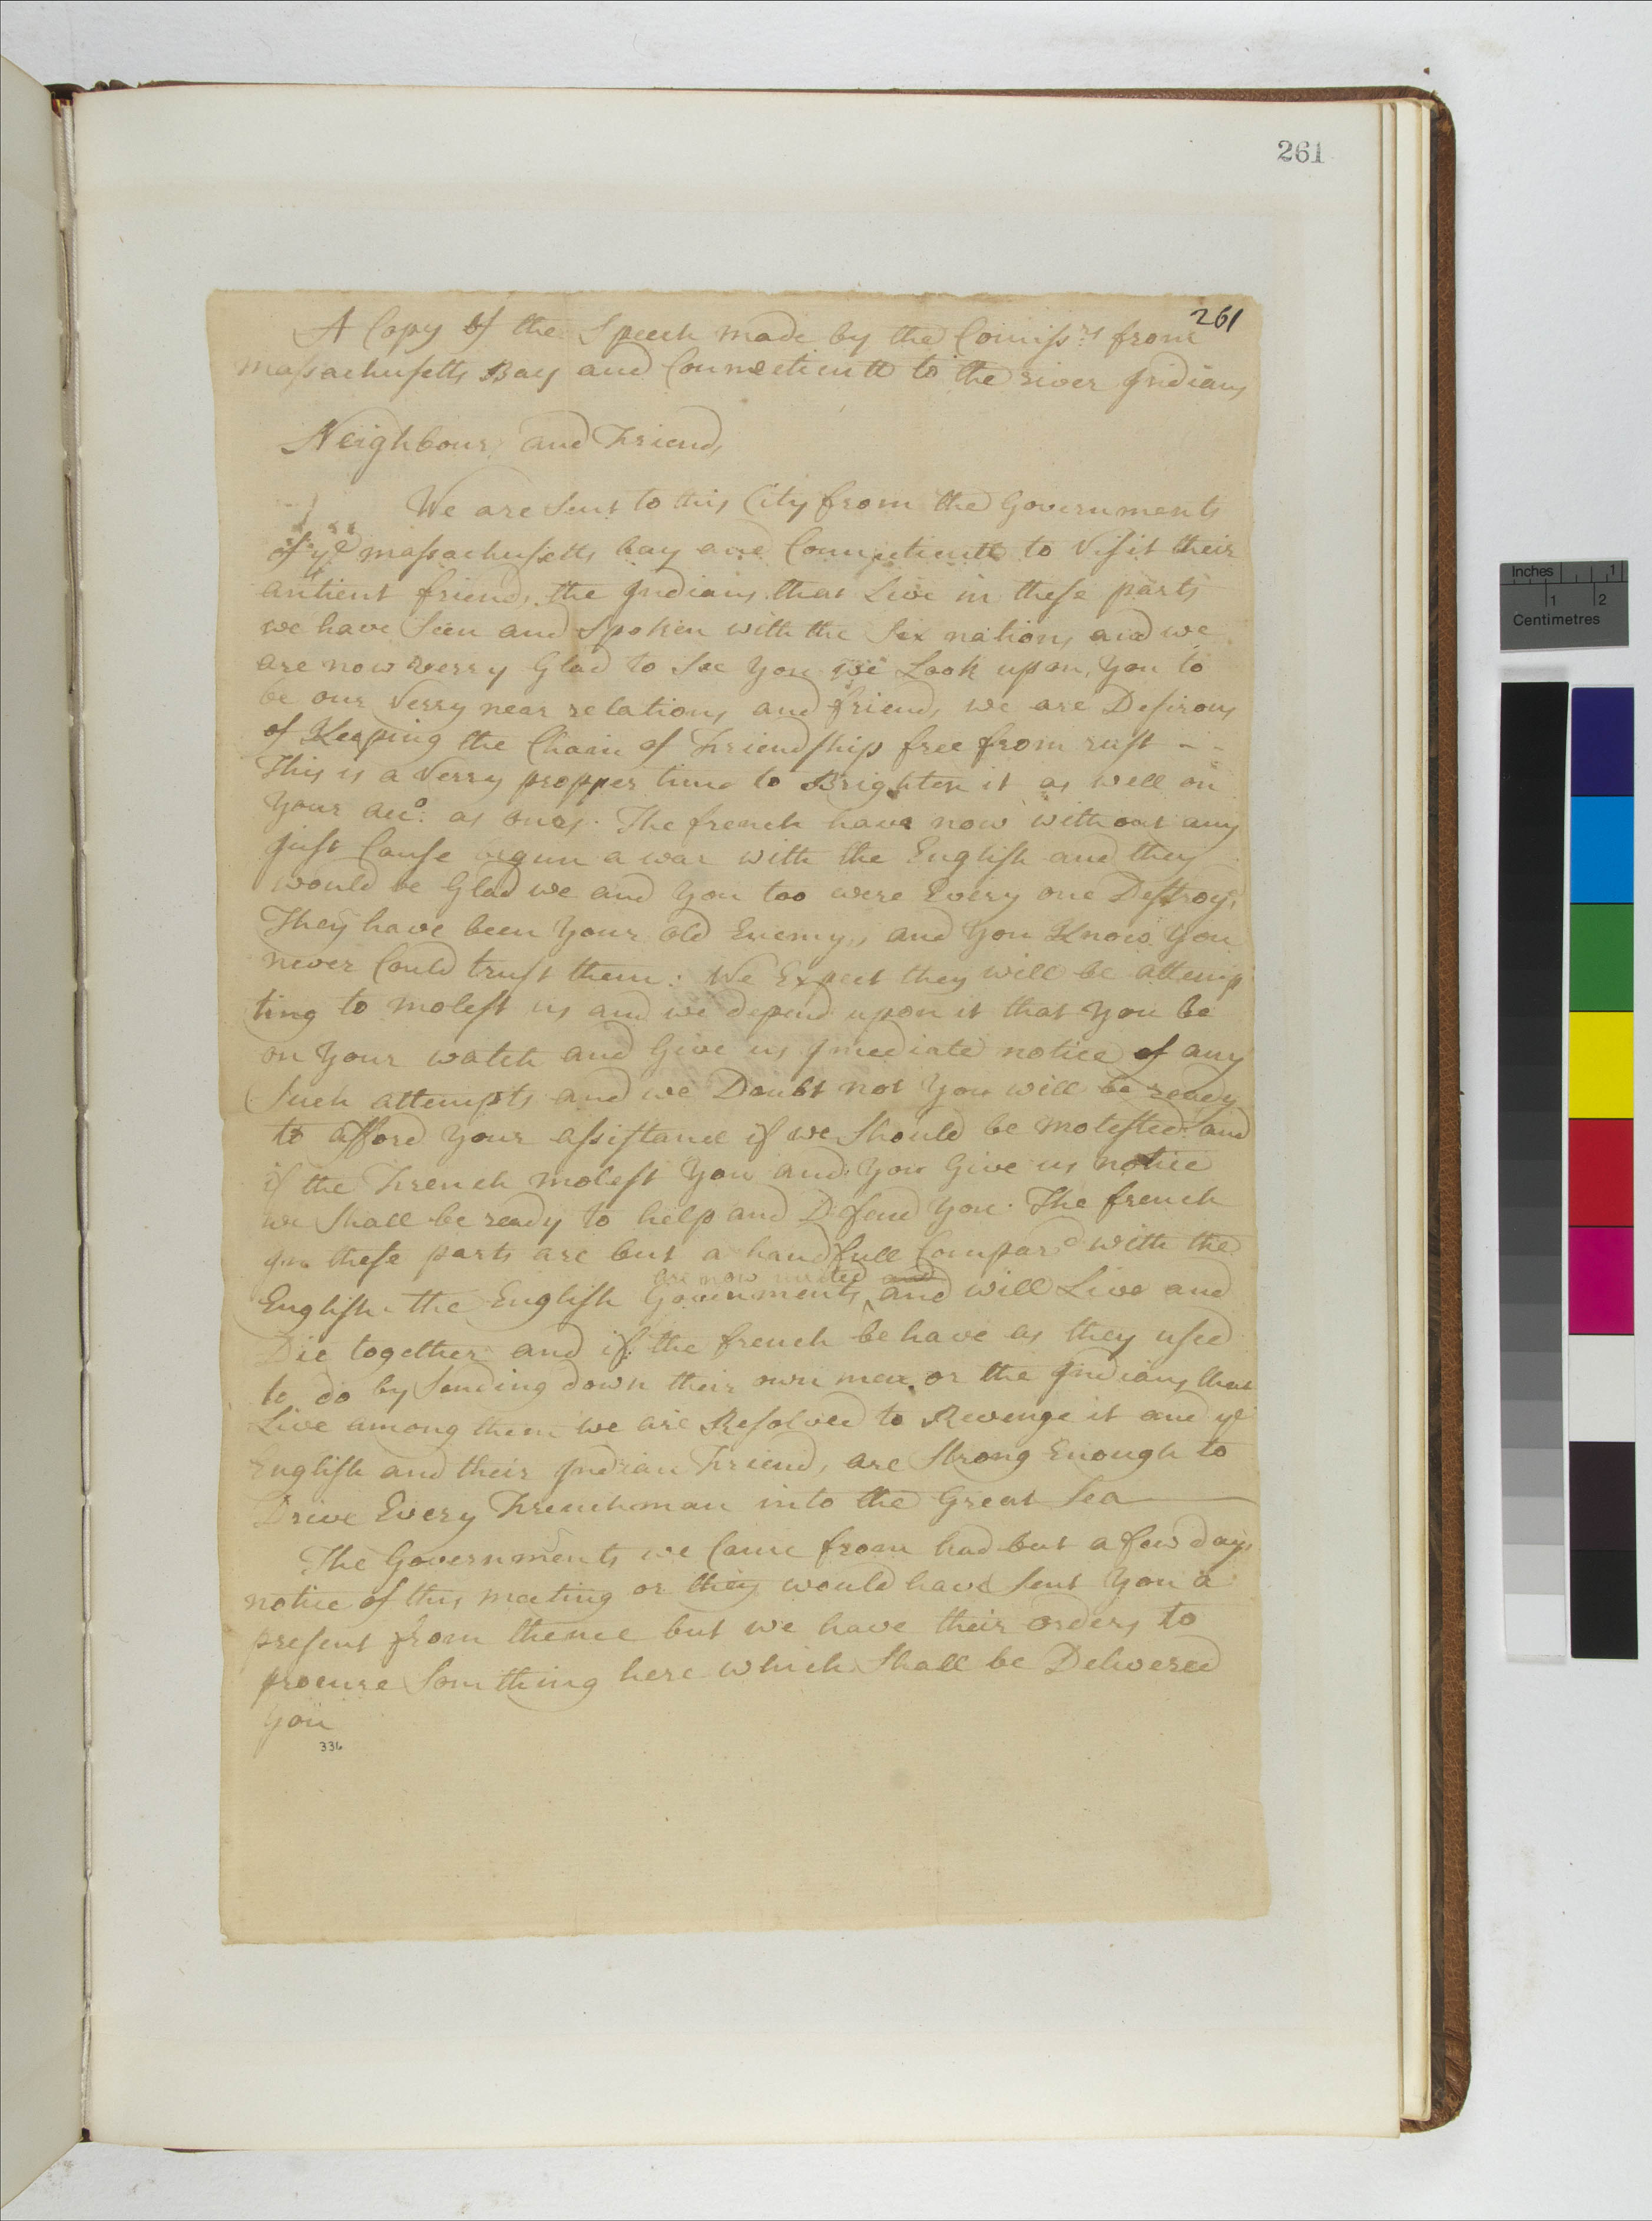 261
261
A Copy of the Speech made by the Comiss:rs from
Massachusetts Bay and Connecticutt to the river Indians
Neighbours and Friends
We are sent to this City from the Governments
of ye massachusetts bay and Connecticutt to Visit their
antient friends the Indians that Live in these parts
we have Seen and Spoken with the Six nations and we
are now verry Glad to See You we Look upon You to
be our Verry near relations and friends we are Desirous
of Keeping the Chain of Friendship free from rust - -
This is a Verry propper time to Brighten it as well on
Your acco: as ours. The french have now without any
just Cause begun a war with the English and they
would be Glad we and You too were Every one Destroyd
They have been Your old Enemys and You Know You
never Could trust them: We Expect they will be attemp
ting to molest us and we depend upon it that You be
on Your watch and Give us Imediate notice of any
Such attempts and we Doubt not You will be ready
to afford Your assistance if we Should be molested and
if the French molest You and You Give us notice
we Shall be ready to help and Defend You. The french
In these parts are but a handfull Compard with the
are now united and
English the English Governments and will Live and
Die together and if the french behave as they used
to do by Sending down their own men or the Indians that
Live among them we are Resolved to Revenge it and ye
English and their Indian Friends are Strong Enough to
Drive Every Frenchman into the Great Sea
The Governments we Came from had but a few days
notice of this meeting or they would have Sent You a
present from thence but we have their orders to
procure Som thing here which Shall be Delivered
You
336
Inches 1
1 2
Centimetres